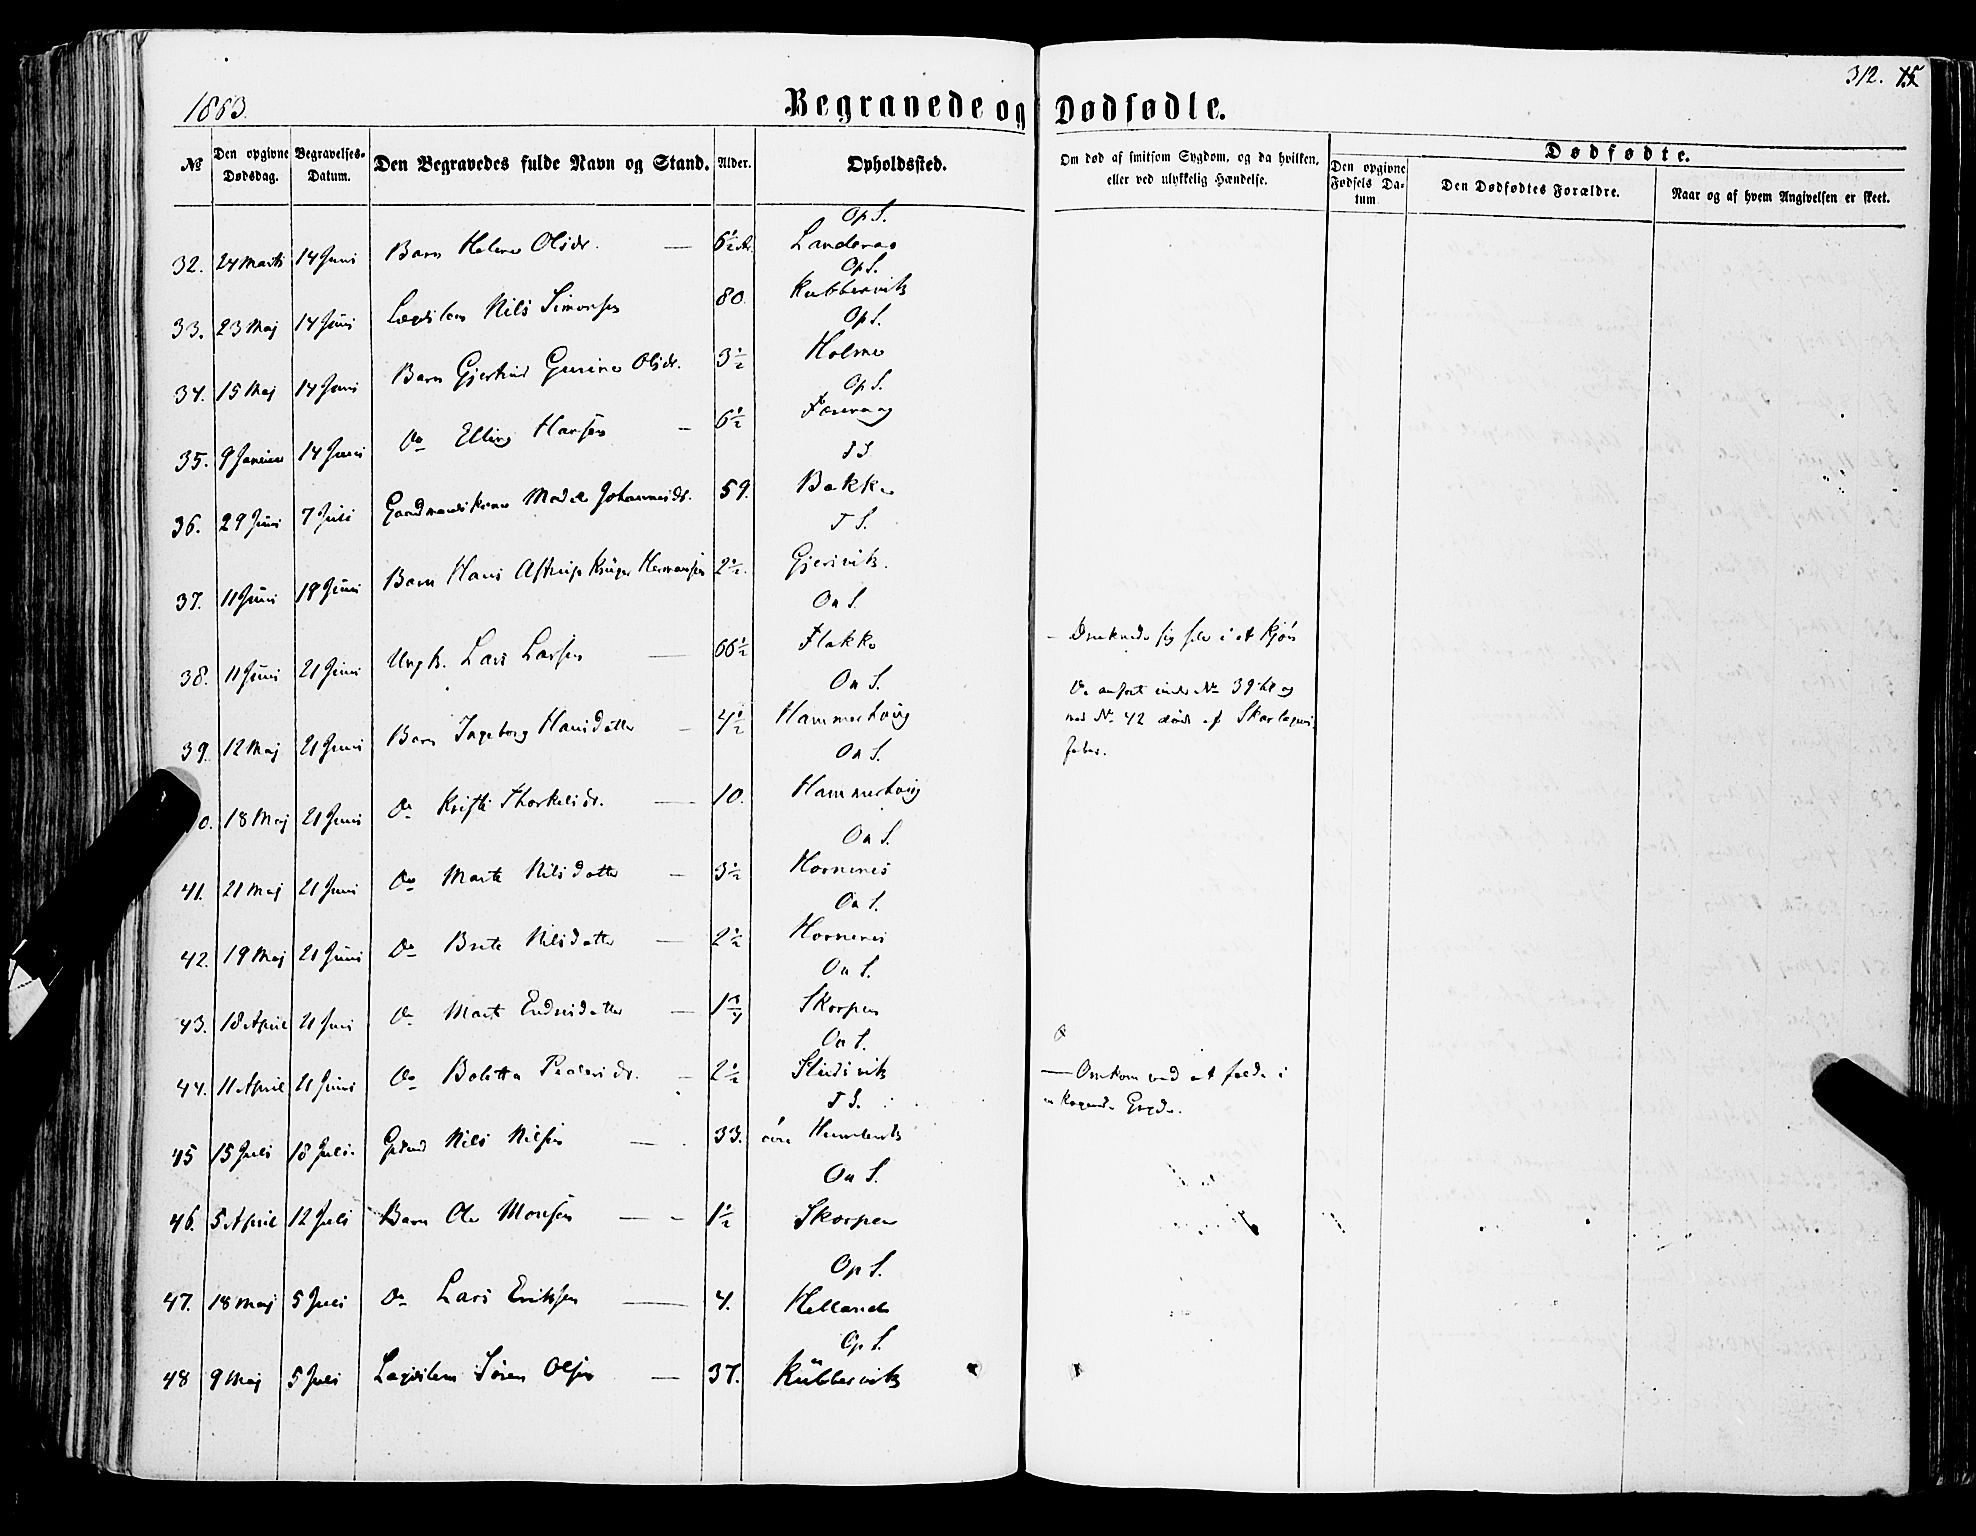 1863.
Begravede og Dødfødte.
312. 15
№ Den opgivne Dødsdag. Begravelses-Datum. Den Begravedes fulde Navn og Stand. Alder. Opholdssted. Om død af smitsom Sygdom, og da hvilken, eller ved ulykkelig Hændelse. Dødfødte.
Den opgivne Fødsels Datum Den Dødfødtes Forældre. Naar og af hvem Angivelsen er skeet.
Op S.
32. 24 Marts 14 Juni Barn Helene Olsdr. — 6½
Op S.
33. 23 Maj 14 Juni Lægdslem Nils Simonsen 80. Kubbesvik
Op S.
34. 15 Maj 14 Juni Barn Gjertrud Gurine Olsdr. 3½ Holme
Op S.
35. 9 Januar 14 Juni Do Elling Hansen — 6½
36. 29 Juni 7 Juli Gaardmandskone 59. Bakke
T S.
37. 11 Juni 19 Juni Barn Hans Astrup Krüger Hermansen 2½. Gjersvik.
On S.
38. 11 Juni 21 Juni Ungk. Lars Larsen — 66½ Flokke — Druknede sig selv i et Kjøn
On S.
39. 12 Maj 21 Juni Barn Ingeborg Hansdatter — 4½ Hammerhoug Do anført under No 39 til og
med No 42 døde af Skarlagens
feber.
On S.
0. 18 Maj 21 Juni Do Kristi Thorkelsdr. — 10. Hammerhoug
On S.
41. 21 Maj 21 Juni Do Marte Nilsdatter — 3½ Hornenes
On S.
42. 19 Maj 21 Juni Do Brite Nilsdatter — 2½ Hornenes
On S.
43. 18 April 21 Juni Do Marte Endresdatter — 1¾ Skorpen
On S.
44. 11 April 21 Juni Do Boletta Pedersdr. — 2½ — Omkom ved at falde i
en kogende Gryde.
T S.
45 15 Juli 18 Juli. Nils Nilsen — 33.
On S.
46. 5 April 12 Juli Barn Ole Monsen — — 1½ Skorpen
Op S.
47. 18 Maj 5 Juli Do Lars Eriksen — 4. Helland
Op S.
48 9 Maj 5 Juli Lægdslem Søren Olsen — 37. Kübbesvik